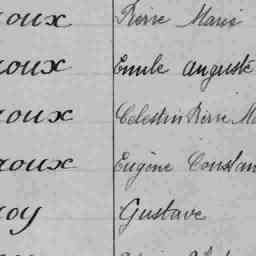 oux Pierre Marie
oux Emile Auguste
oux Célestin Pierre M
roux Eugène Constan
oy Gustave